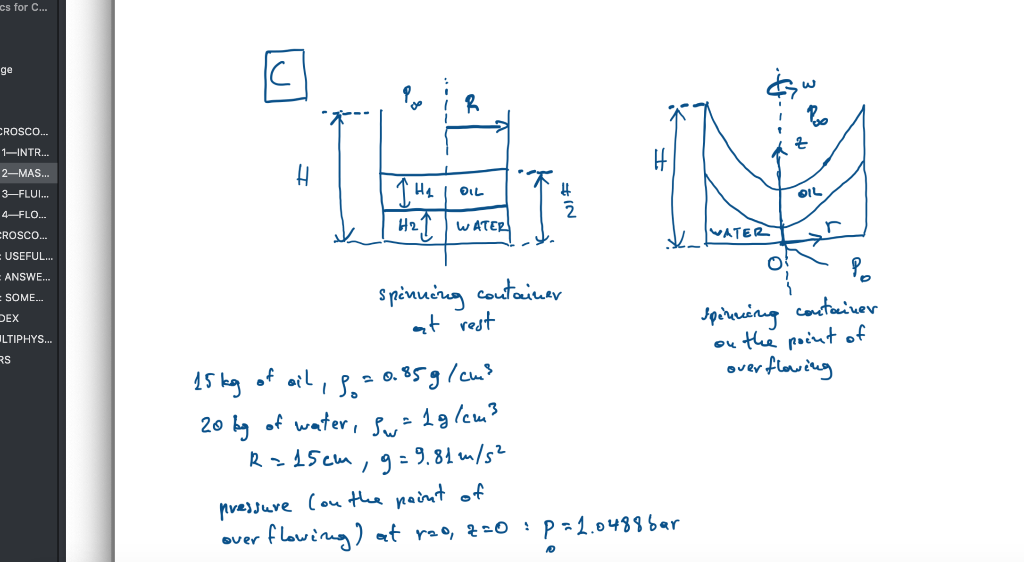 cs for C...
ge
CROSCO...
1—INTR...
2—MAS...
3—FLUI...
4—FLO...
CROSCO...
: USEFUL...
: ANSWE...
: SOME...
DEX
LTIPHYS...
RS
C
P∞ R
H
H1 OIL
H2 WATER
H/2
spinning container
at rest
ω
P∞
z
H
OIL
WATER r
O P0
spinning container
on the point of
overflowing
15 kg of oil, ρo = 0.85 g/cm³
20 kg of water, ρw = 1 g/cm³
R = 15 cm, g = 9.81 m/s²
pressure (on the point of
overflowing) at r=0, z=0 : p0 = 1.0488 bar